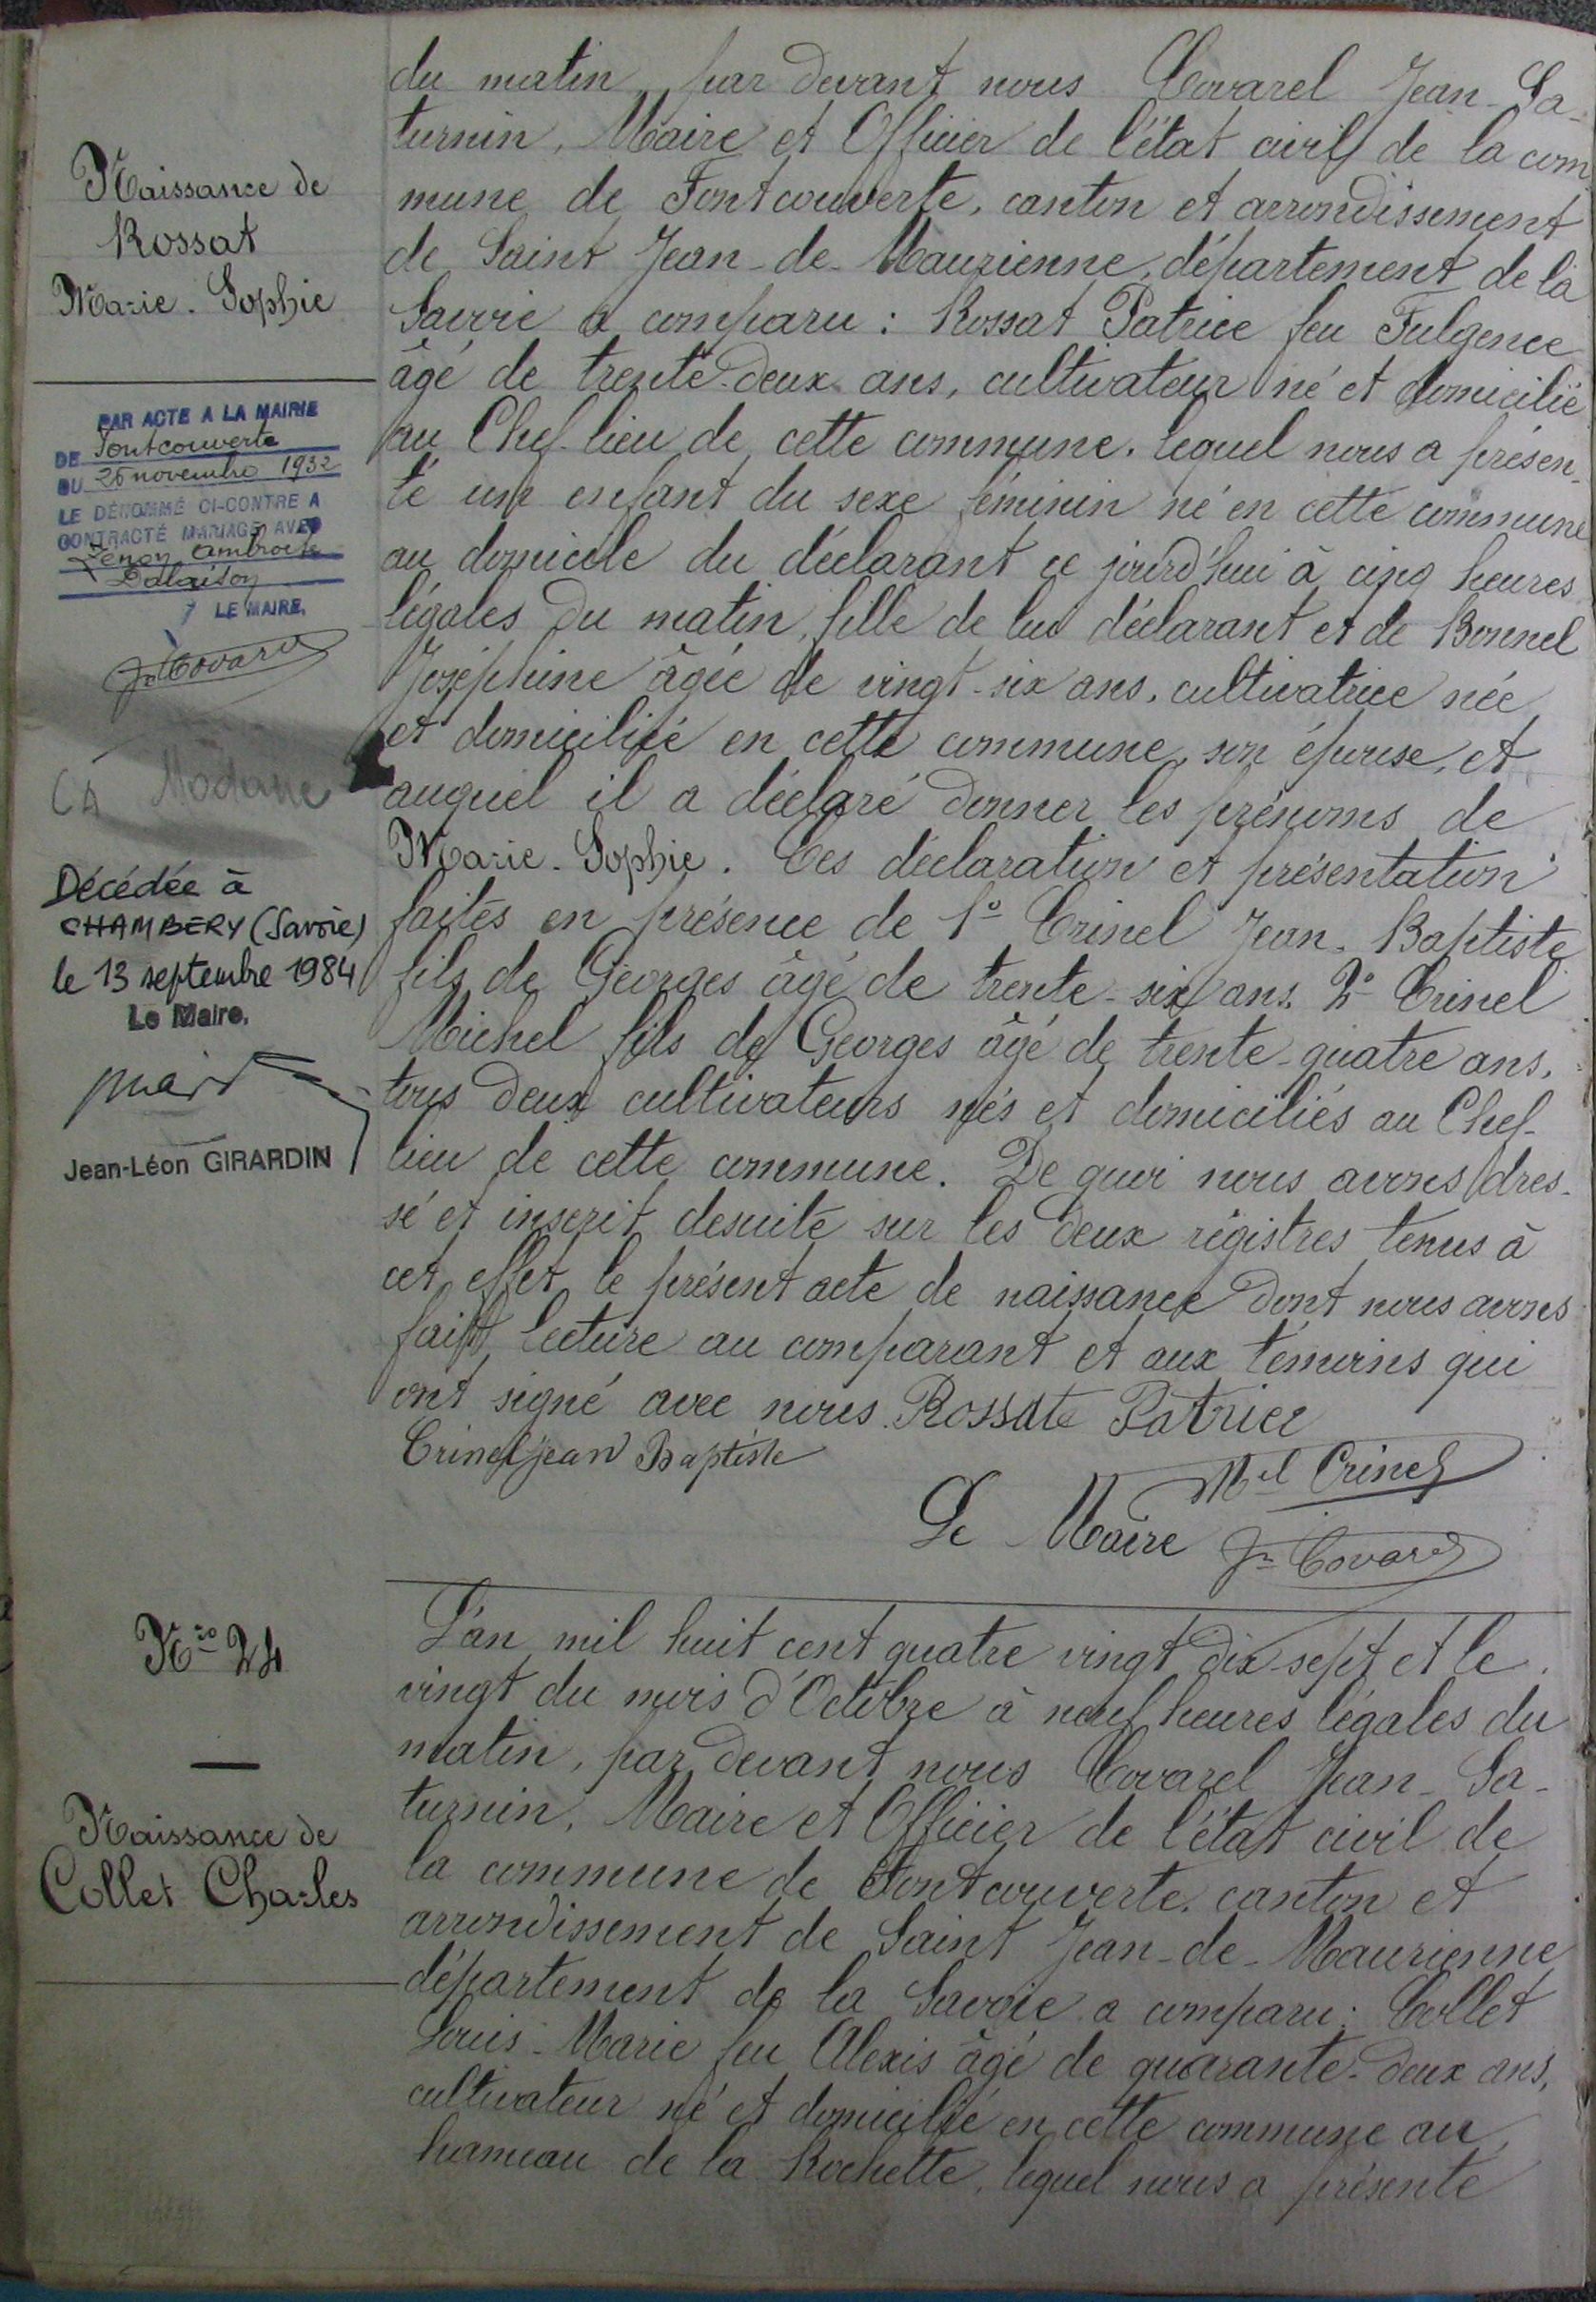 Naissance de
Rossat
Marie-Sophie
PAR ACTE A LA MAIRIE
DE Fontcouverte
DU 26 novembre 1932
LE DÉNOMMÉ CI-CONTRE A
CONTRACTÉ MARIAGE AVEC
Zenon Ambroise
Dalaison
LE MAIRE,
Jn Covarel
Modane
Décédée à
CHAMBERY (Savoie)
le 13 septembre 1984
Le Maire,
Jean-Léon GIRARDIN
du matin, par devant nous Covarel Jean-Sa-
turnin, Maire et Officier de l'état civil de la com
mune de Fontcouverte, canton et arrondissement
de Saint Jean-de-Maurienne, département de la
Savoie a comparu : Rossat Patrice feu Fulgence
âgé de trente-deux ans, cultivateur né et domicilié
au Chef-lieu de cette commune, lequel nous a présen-
té un enfant du sexe féminin né en cette commune
au domicile du déclarant ce jourd'hui à cinq heures
légales du matin, fille de lui déclarant et de Bonnel
Joséphine âgée de vingt-six ans, cultivatrice née
et domiciliée en cette commune, son épouse, et
auquel il a déclaré donner les prénoms de
Marie-Sophie. Ces déclaration et présentation
faites en présence de 1º Crinel Jean-Baptiste
fils de Georges âgé de trente-six ans, 2º Crinel
Michel fils de Georges âgé de trente-quatre ans,
tous deux cultivateurs nés et domiciliés au Chef-
lieu de cette commune. De quoi nous avons dres-
sé et inscrit desuite sur les deux régistres tenus à
cet effet le présent acte de naissance dont nous avons
fait lecture au comparant et aux témoins qui
ont signé avec nous. Rossate Patrice
Crinel jean Baptiste
Mel Crinel
Le Maire Jn Covarel
Nro 24
Naissance de
Collet Charles
L'an mil huit cent quatre vingt dix-sept et le
vingt du mois d'Octobre à neuf heures légales du
matin, par devant nous Covarel Jean-Sa-
turnin, Maire et Officier de l'état civil de
la commune de Fontcouverte, canton et
arrondissement de Saint Jean-de-Maurienne
département de la Savoie a comparu : Collet
Louis-Marie feu Alexis âgé de quarante-deux ans,
cultivateur né et domicilié en cette commune au
hameau de la Rochette, lequel nous a présenté